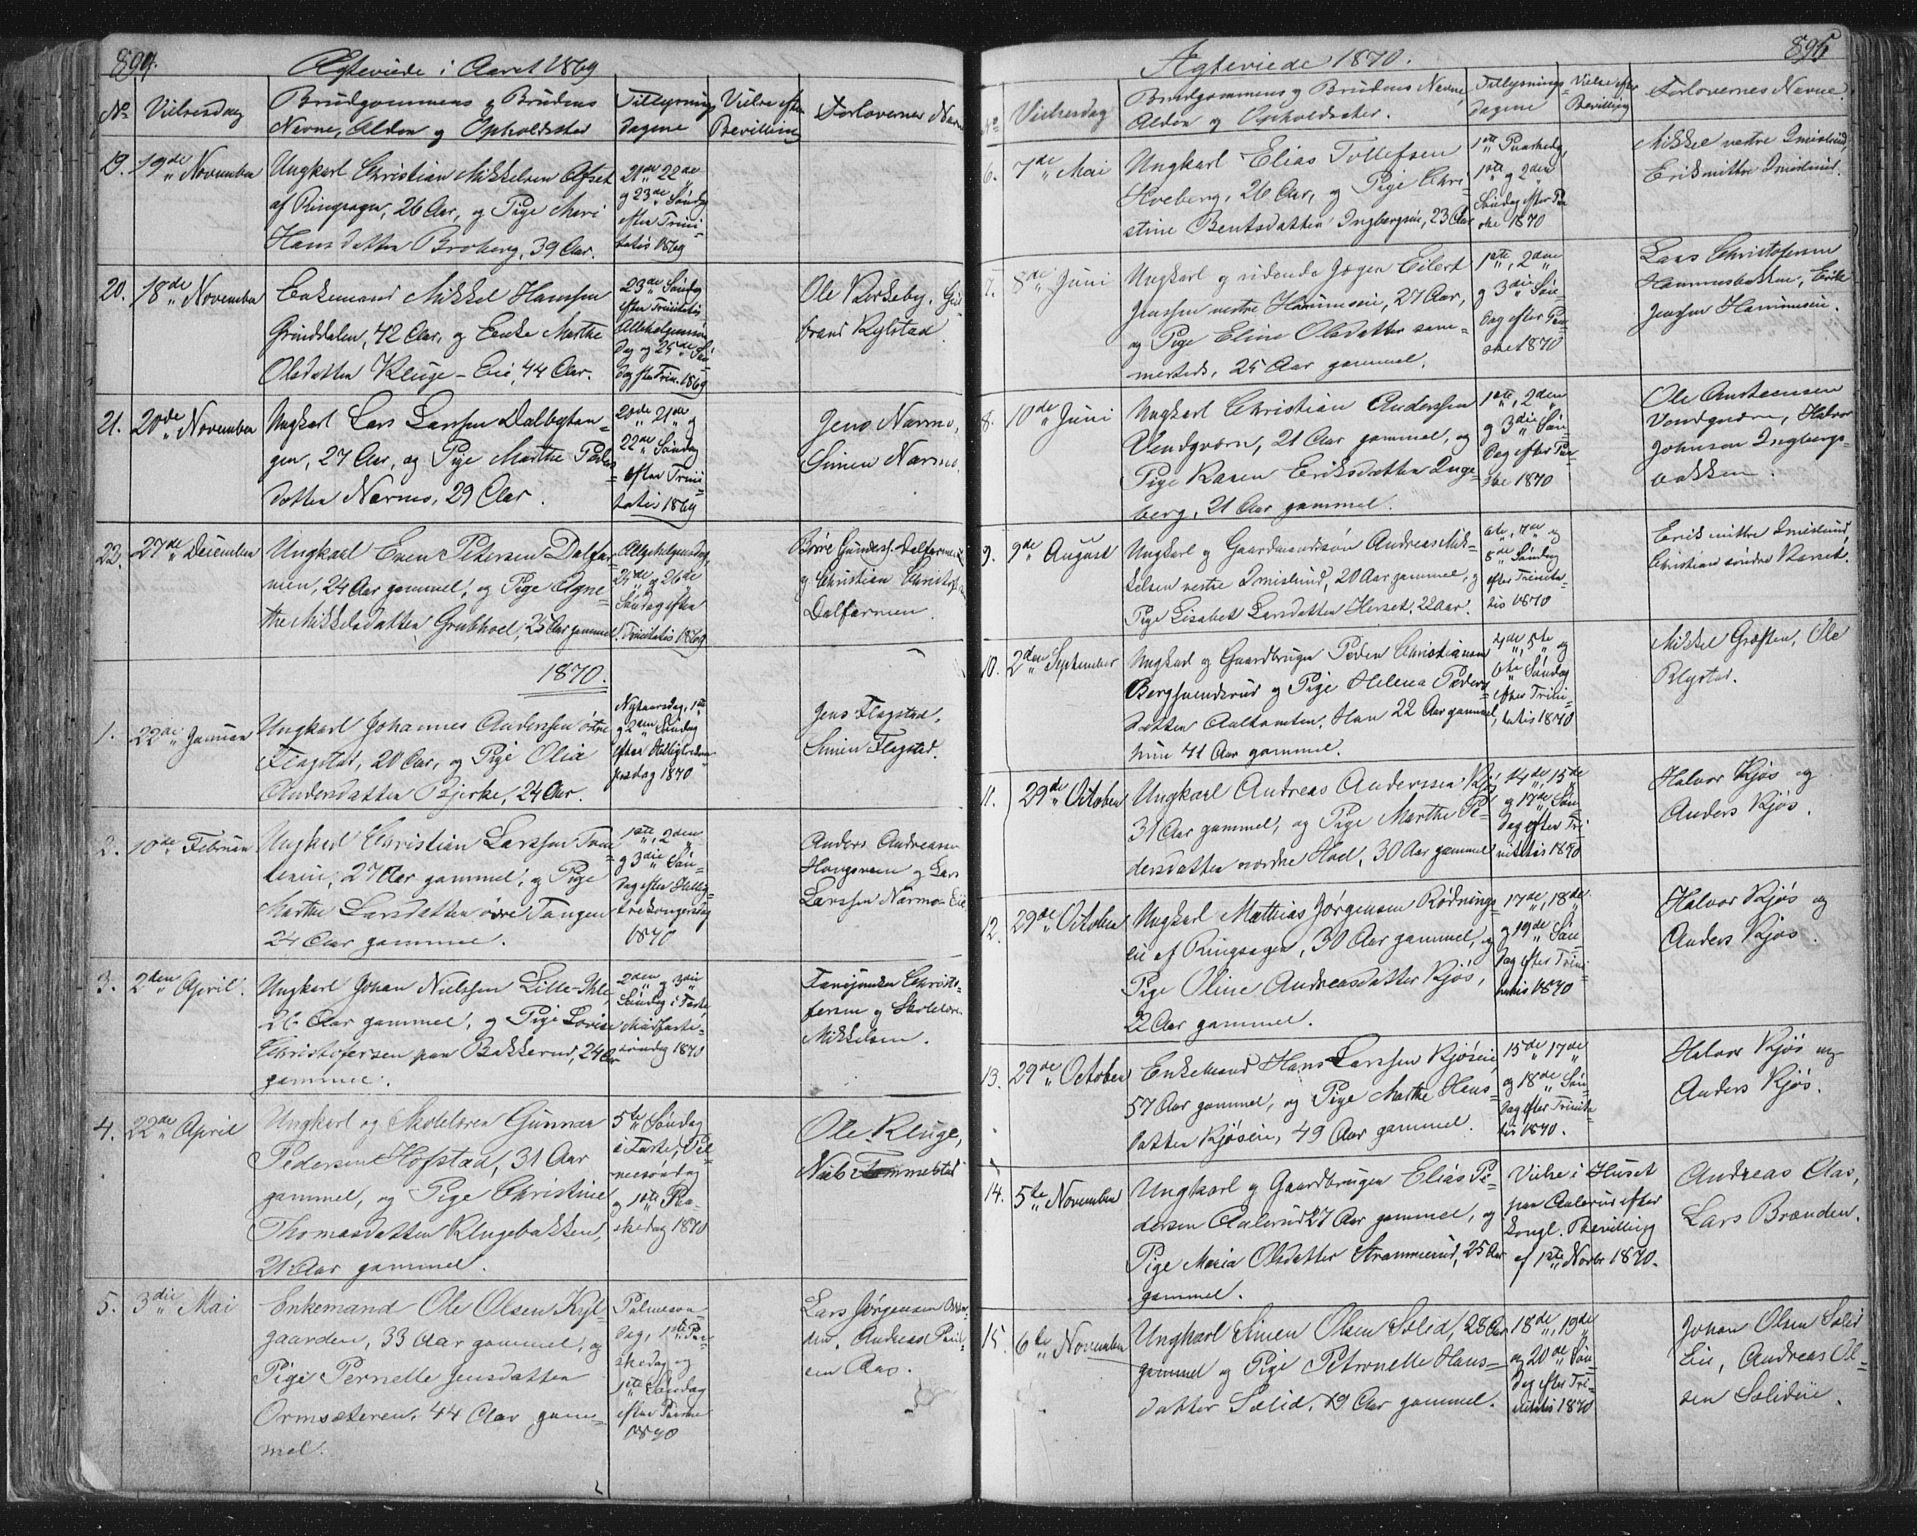 894.
Ægteviede i Aaret 1869
No
Vielsesdag
Brudgommens og Brudens
Navne, Alder og Opholdssted
Tillysnings
dagene
Vielse efter
Bevilling
Forlovernes Navne
19.
19de November
Ungkarl Christian Mikkelsen
af Ringsager, 26 Aar, og Pige Mari
Hansdatter Broberg, 39 Aar.
21de 22de
og 23de Søndag
efter Trini-
tatis 1869
20.
18de November
Enkemand Mikkel Hanssen
Grinddalen, 42 Aar, og Enke Marthe
Olsdatter Kluge-Eie, 44 Aar.
23de Søndag
efter Trinitatis
Allehelgens
dag og 25de Søn
dag efter Trin. 1869
Ole Korseby, Gul
brand Rylstad
21.
20de November
Ungkarl Lars Larssen Dalbytan-
gen, 27 Aar, og Pige Marthe Peders
datter Narmo, 29 Aar.
20de 21de og
22de Søndag
efter Trini-
tatis 1869
Jens Narmo,
Simen Narmo.
22.
27de December
Ungkarl Even Petersen Dalfar-
men, 24 Aar gammel, og Pige Agne-
the Mikkelsdatter Grubhoel, 25 Aar gammel.
25de og 26de
Søndag efter
Trinitatis 1869
og Christian
Dalfarmen
1870.
1.
22de Januar
Ungkarl Johannes Anderssen østre
Flagstad, 20 Aar, og Pige Olia
Andersdatter Bjerke, 24 Aar.
Nytaarsdag, 1ste
og 2den Søndag
efter Helligtrekon
gersdag 1870
Jens Flagstad.
Simen Flagstad.
2.
10de Februar
Ungkarl Christian Larssen
27 Aar gammel, og Pige
Marthe Larsdatter øvre Tangen
24 Aar gammel.
1ste, 2den
og 3die Søn-
dag efter Hellig-
trekongersdag
1870
Anders Andreassen
og Lars
Larssen Narmo-Eie
3.
2den April.
Ungkarl Johan Nielssen Lille-Ihle,
26 Aar gammel, og Pige Lovise
Christofersen paa Bakkerud, 24 Aar
gammel.
2den og 3die
Søndag i Faste
Midfaste-
søndag 1870
Christo-
fersen og Skolelærer
Mikkelsen.
4.
22de April
Ungkarl og Skolelærer Gunnar
Pedersen Hofstad, 31 Aar
gammel, og Pige Christine
Thomasdatter Klugebakken,
21 Aar gammel.
5te Søndag
i Faste, Pal-
mesøndag
og 1ste Paa-
skedag 1870
Ole Kluge,
Niels Tommelstad
5.
3die Mai
Enkemand Ole Olsen Kyl-
gaarden, 33 Aar gammel, og
Pige Pernelle Jensdatter
Ormsæteren, 44 Aar gam-
mel.
Palmesøn
dag, 1ste Paa-
skedag og
1ste Søndag
efter Paaske
1870
Lars Jørgensen
Andreas
Aas.
895
Ægteviede 1870.
No
Vielsesdag
Brudgommens og Brudens Navne,
Alder og Opholdssted.
Tillysnings-
dagene
Vielse efter
Bevilling
Forlovernes Navne.
6.
7de Mai
Ungkarl Elias Tollefsen
Hoeberg, 26 Aar, og Pige Chri-
stine Bentsdatter Ingbergseie, 23 Aar
1ste Paaskedag
1ste og 2den
Søndag efter Paa-
ske 1870
Mikkel vestre Imislund
Erik mittre Imislund.
7.
8de Juni
Ungkarl og ridende Jæger Eilert
Jenssen vestre Hammeseie, 27 Aar,
og Pige Eline Olsdatter sam-
mesteds, 25 Aar gammel.
1ste, 2den
og 3die Søn-
dag efter Paa-
ske 1870
Lars Christofersen
Hammesbakken, Erik
Jenssen Hammeseie.
8.
10de Juni
Ungkarl Christian Anderssen
Vendqværn, 21 Aar gammel, og
Pige Karen Eriksdatter Inge-
berg, 21 Aar gammel.
1ste, 2den
og 3die Søn-
dag efter Paa-
ske 1870
Ole
Vendqværn, Halvor
Johnsen Ingbergs-
bakken.
9.
9de August
Ungkarl og Gaardmandssøn Andreas Mik-
kelsen vestre Imislund, 20 Aar gammel, og
Pige Lisabet Larsdatter Herset, 22 Aar.
6te, 7de og
8de Søndag
efter Trinita-
tis 1870
Erik mittre Imislund,
Christian søndre
10.
2den September
Ungkarl og Gaardbruger Peder Christiansen
Bergsvendsrud og Pige Helena Peders-
datter Aalkamten, Han 22 Aar gammel,
hun 41 Aar gammel.
4de, 5te og
6te Søndag
efter Trini-
tatis 1870
Mikkel Græften, Ole
Rlystad.
11.
29de October
Ungkarl Andreas Anderssen Kjøs
31 Aar gammel, og Pige Marthe Pe-
dersdatter nordre Hoel, 30 Aar gammel
14de, 15de
og 17de Søn-
dag efter Tri-
nitatis 1870
Halvor Kjøs og
Anders Kjøs.
12.
29de October
Ungkarl Mathias Jørgensen Rødnings-
eie af Ringsager, 30 Aar gammel, og
Pige Oline Andreasdatter Kjøs,
22 Aar gammel.
17de, 18de
og 19de Søn-
dag efter Trini
tatis 1870
Halvor Kjøs og
Anders Kjøs.
13.
29de October
Enkemand Hans Larssen Kjøseie,
57 Aar gammel, og Pige Marthe Hans-
datter Kjøseie, 49 Aar gammel.
15de 17de
og 18de Søn-
dag efter Trinita
tis 1870.
Halvor Kjøs og
Anders Kjøs.
14.
5te November
Ungkarl og Gaardbruger Elias Pe-
dersen Aalerud 27 Aar gammel, og
Pige Maria Olsdatter Strammerud, 25 Aar
gammel.
Vielse i Huset
paa Aalerud efter
Kongl. Bevilling
af 1ste Novbr 1870.
Andreas Aas,
Lars Brænden.
15.
6te November
Ungkarl Simen Olsen Solid, 28 Aar
gammel og Pige Petronelle Hans-
datter Solid, 29 Aar gammel.
18de, 19de
og 20de Søn-
dag efter Tri-
nitatis 1870
Johan Olsen Solid
Eie, Andreas Ol-
sen Solideie.